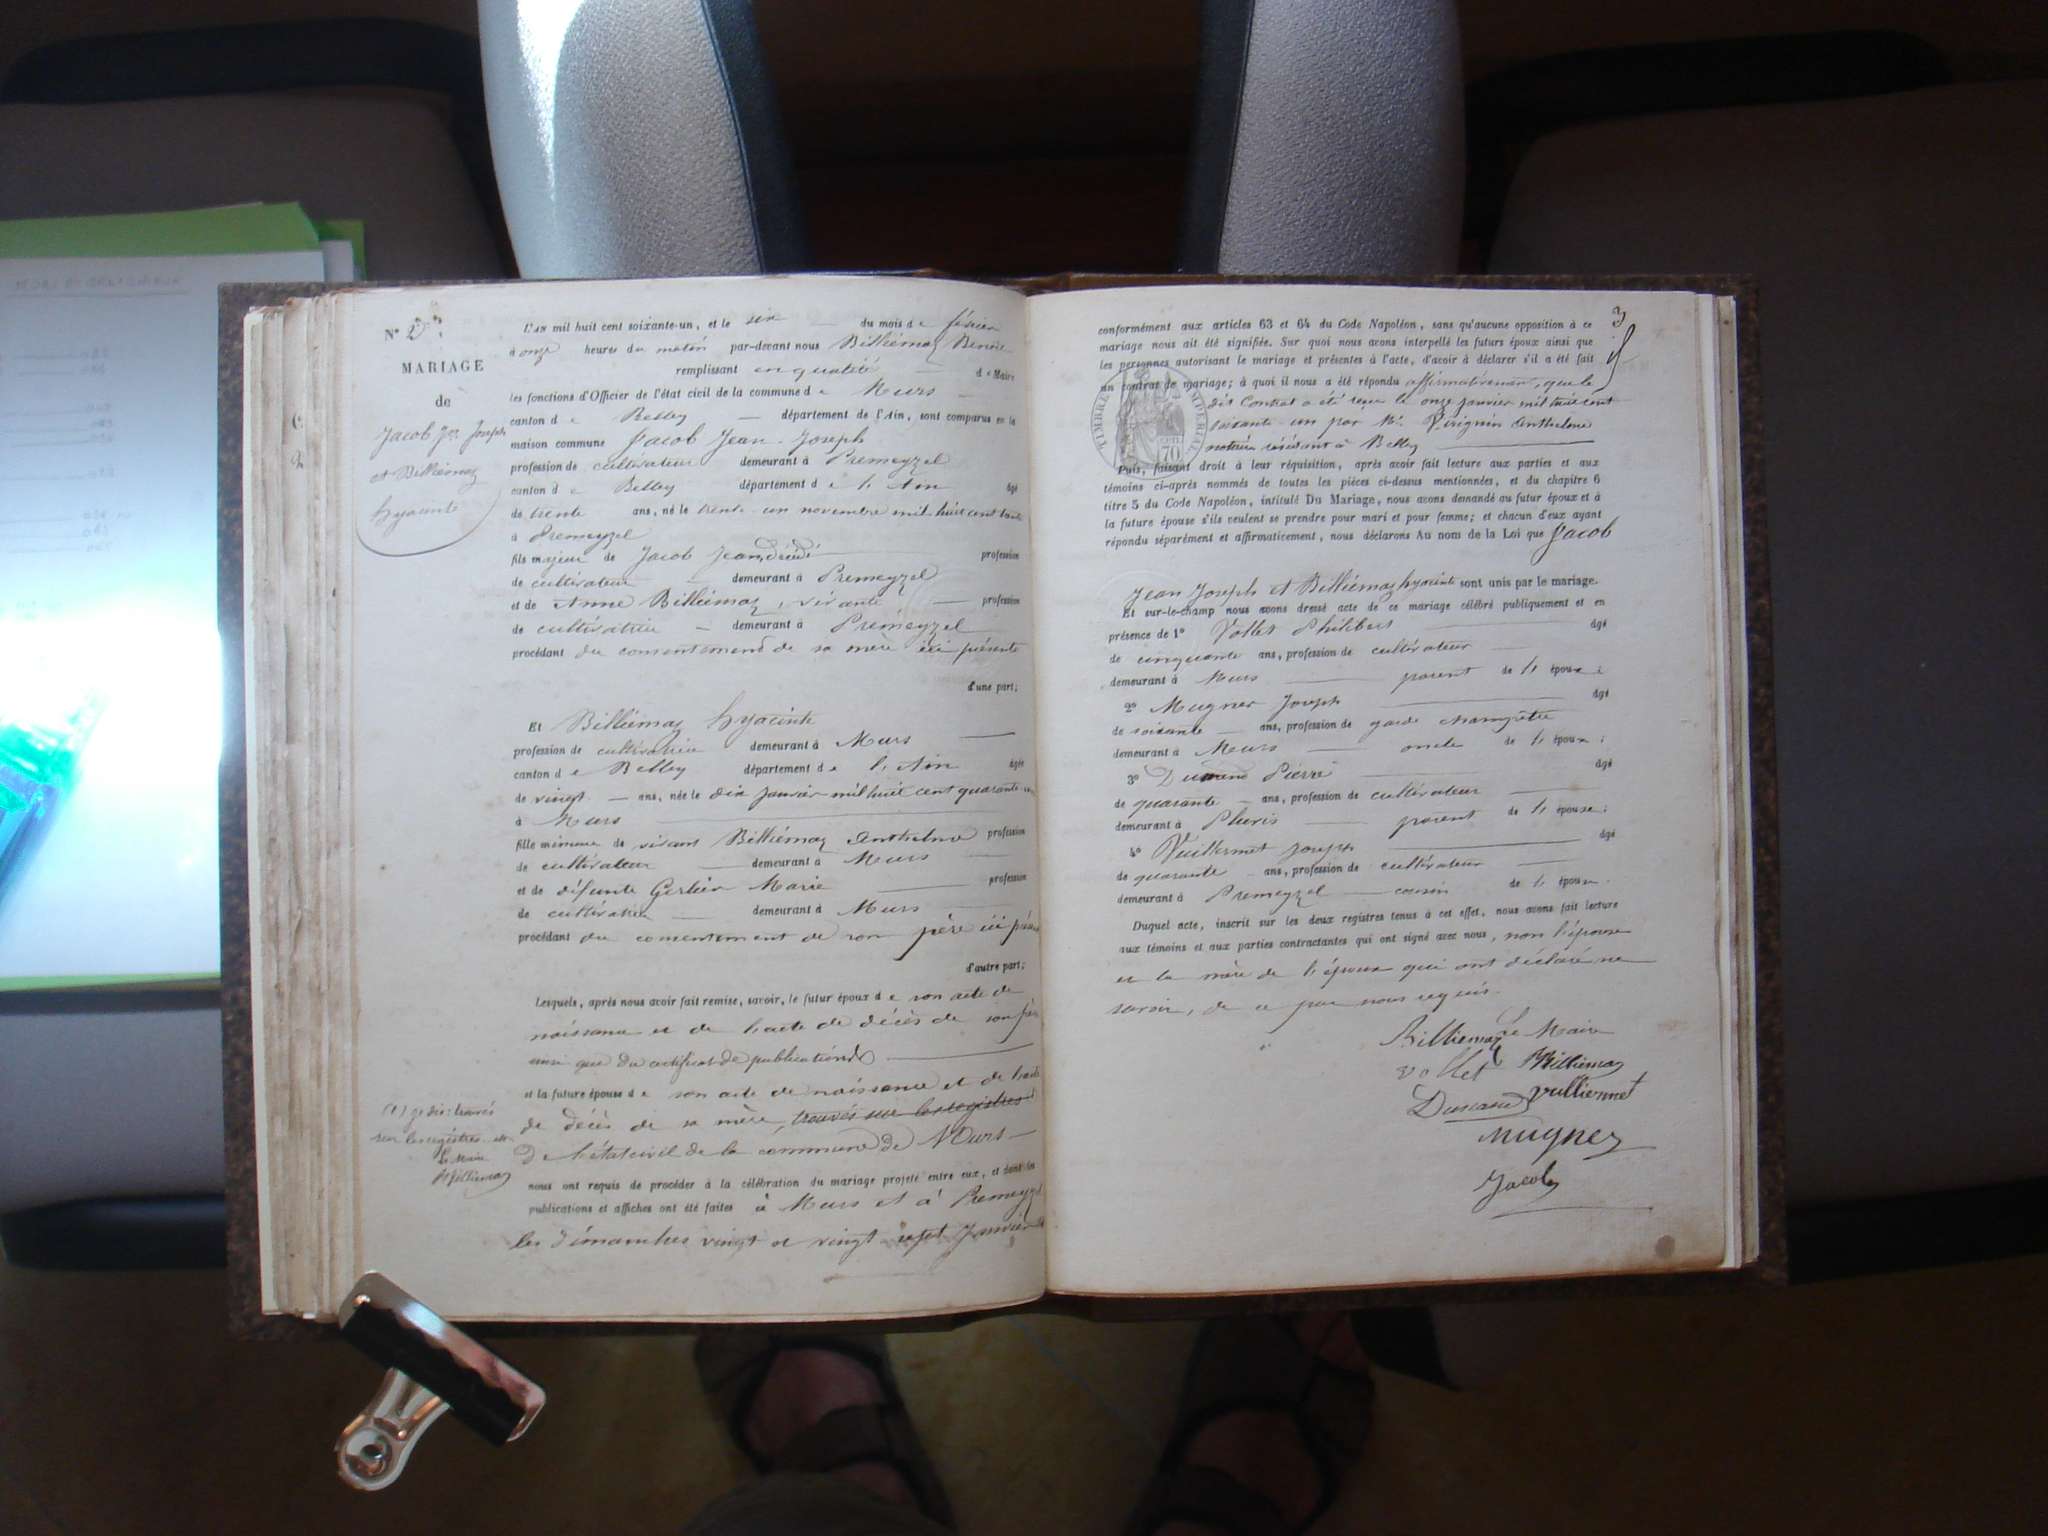 N° 2
MARIAGE
de
Jacob Jean Joseph
et Billiémaz
hyacinte
L'AN mil huit cent soixante-un, et le six du mois de février
à onze heures du matin par-devant nous Billiémaz Benoit
remplissant en qualité de Maire
les fonctions d'Officier de l'état civil de la commune de Murs
canton de Belley département de l'Ain, sont comparus en la
maison commune Jacob Jean-Joseph
profession de cultivateur demeurant à Premeyzel
canton de Belley département de l'Ain âgé
de trente ans, né le trente un novembre mil huit cent trente
à Premeyzel
fils majeur de Jacob Jean, décédé profession
de cultivateur demeurant à Premeyzel
et de Anne Billiémaz, vivante profession
de cultivatrice demeurant à Premeyzel
procédant du consentement de sa mère ici présente
d'une part;
Et Billiémaz hyacinte
profession de cultivatrice demeurant à Murs
canton de Belley département de l'Ain âgée
de vingt ans, née le dix janvier mil huit cent quarante-un
à Murs
fille mineure de vivant Billiémaz Anthelme profession
de cultivateur demeurant à Murs
et de défunte Gerbier Marie profession
de cultivatrice demeurant à Murs
procédant du consentement de son père ici
d'autre part;
Lesquels, après nous avoir fait remise, savoir, le futur époux de son acte de
naissance et de l'acte de décès de son
ainsi que du certificat de publications
et la future épouse de son acte de naissance et de l'acte
de décès de sa mère, trouvés sur les registres
De l'état civil de la commune de Murs
(1) je dis: trouvés
sur les registres
le Maire
Billiémaz
nous ont requis de procéder à la célébration du mariage projeté entre eux, et dont les
publications et affiches ont été faites à Murs et à Premeyzel
les dimanches vingt et vingt sept Janvier
3
conformément aux articles 63 et 64 du Code Napoléon, sans qu'aucune opposition à ce
mariage nous ait été signifiée. Sur quoi nous avons interpellé les futurs époux ainsi que
les personnes autorisant le mariage et présentes à l'acte, d'avoir à déclarer s'il a été fait
un contrat de mariage; à quoi il nous a été répondu affirmativement, que le
dit Contrat a été reçu le onze janvier mil huit cent
soixante-un par Me Virignin Anthelme
notaire résidant à Belley
TIMBRE IMPERIAL
70
Puis, faisant droit à leur réquisition, après avoir fait lecture aux parties et aux
témoins ci-après nommés de toutes les pièces ci-dessus mentionnées, et du chapitre 6
titre 5 du Code Napoléon, intitulé Du Mariage, nous avons demandé au futur époux et à
la future épouse s'ils veulent se prendre pour mari et pour femme; et chacun d'eux ayant
répondu séparément et affirmativement, nous déclarons Au nom de la Loi que Jacob
Jean Joseph et Billiémaz hyacinte sont unis par le mariage.
Et sur-le-champ nous avons dressé acte de ce mariage célébré publiquement et en
présence de 1° Vollet Philibert âgé
de cinquante ans, profession de cultivateur
demeurant à Murs parent de l'époux;
2° Mugner Joseph âgé
de soixante ans, profession de garde champêtre
demeurant à Murs oncle de l'époux;
3° Durand Pierre âgé
de quarante ans, profession de cultivateur
demeurant à Pluris parent de l'épouse;
4° Vuillermet Joseph âgé
de quarante ans, profession de cultivateur
demeurant à Premeyzel cousin de l'époux.
Duquel acte, inscrit sur les deux registres tenus à cet effet, nous avons fait lecture
aux témoins et aux parties contractantes qui ont signé avec nous, non l'épouse
et la mère de l'époux qui ont déclaré ne
savoir, de ce par nous requis.
Billiemaz Le Maire
vollet Billiémaz
Durand Vullienmet
Mugner
Jacob